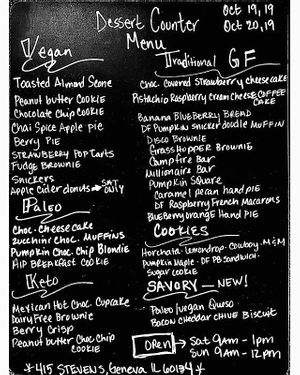 Dessert Counter
Menu
Oct 19, 19
Oct 20, 19
Vegan
Toasted Almond Scone
Peanut butter COOKIE
Chocolate Chip COOKIE
Chai Spice Apple pie
Berry PIE
STRAWBERRY POP Tarts
Fudge BROWNIE
Snickers
Apple Cider donuts → SAT ONLY
Paleo
Choc. Cheesecake
Zucchini Choc. MUFFINS
Pumpkin Choc. Chip Blondie
HIP BREAKFAST COOKIE
Keto
Mexican Hot Choc. Cupcake
Dairy Free Brownie
Berry Crisp
Peanut butter Choc Chip
COOKIE
Traditional GF
Choc. Covered Strawberry Cheesecake
Pistachio Raspberry Cream Cheese COFFEE
CAKE
BANANA BLUEBERRY BREAD
DF PUMPKIN Snickerdoodle MUFFIN
DISCO BROWNIE
GRASSHOPPER BROWNIE
Campfire Bar
Millionaire Bar
Pumpkin Square
Caramel pecan hand pie
DF Raspberry French Macarons
Blueberry orange Hand PIE
COOKIES
Horchata · lemondrop · Cowboy · M&M
Pumpkin Maple · DF PB Sandwich ·
Sugar COOKIE
SAVORY — NEW!
Paleo/vegan Queso
BACON CHEDDAR CHIVE BISCUIT
OPEN → Sat 9AM - 1pm
SUN 9AM - 12pm
* 415 STEVENS, Geneva IL 60134 *